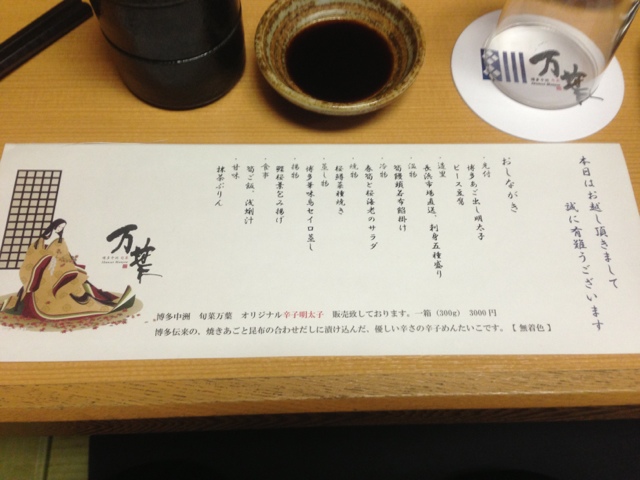 本日はお越し頂きまして
誠に有難うございます
おしながき
・先付
博多あご出し明太子
ピース豆腐
・造里
長浜市場直送、刺身五種盛り
・温物
筍饅頭若布餡掛け
・冷物
春筍と桜海老のサラダ
・焼物
桜鱒菜種焼き
・蒸し物
博多華味鳥セイロ蒸し
・揚物
鯛桜葉包み揚げ
・食事
筍ご飯、浅蜊汁
・甘味
抹茶ぷりん
万葉
博多中洲 旬菜万葉 オリジナル辛子明太子 販売致しております。一箱(300g) 3000円
博多伝来の、焼きあごと昆布の合わせだしに漬け込んだ、優しい辛さの辛子めんたいこです。【 無着色 】
万葉